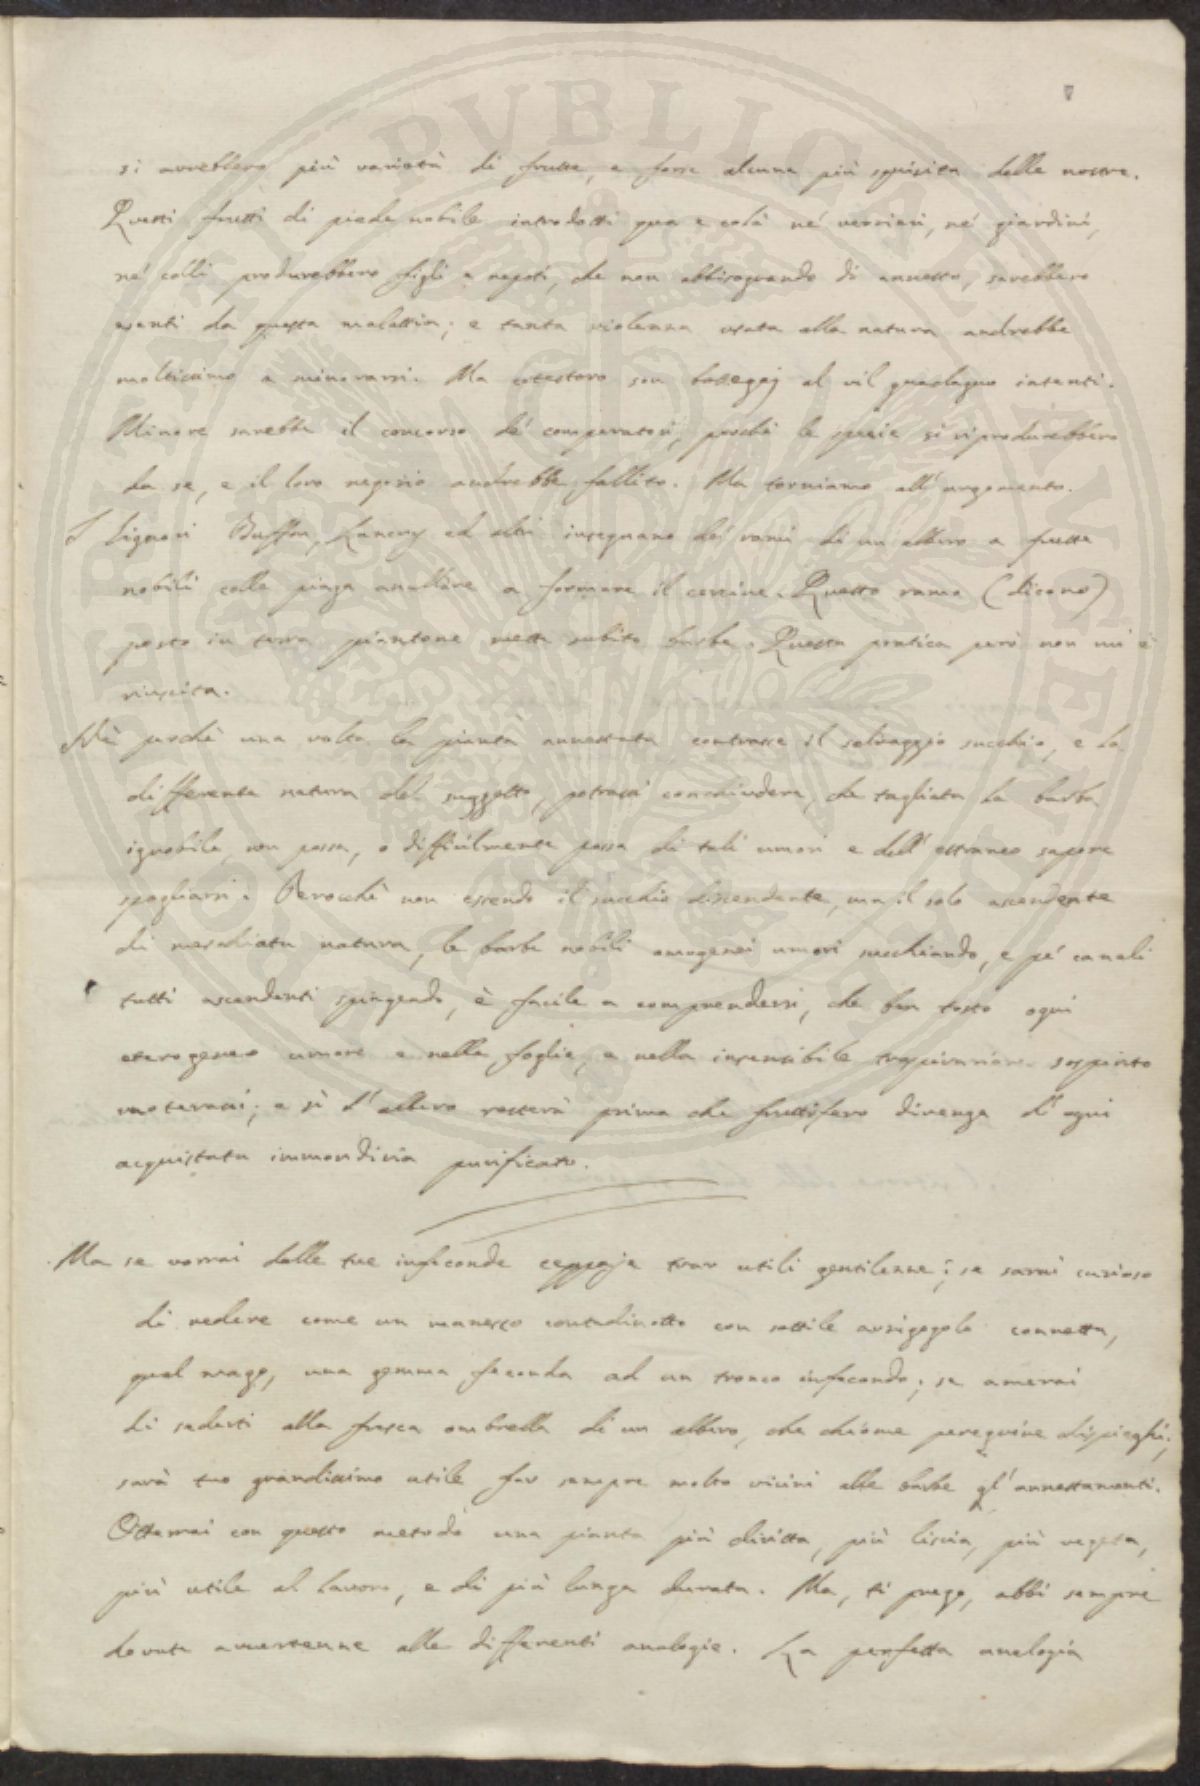 si avrebbero più varietà di frutte, e forse alcuna più squisita delle nostre.
Questi frutti di piede nobile introdotti qua e colà ne' verzieri, ne' giardini,
ne' colli produrebbero figli e nepoti, che non abbisognando di annesto, sarebbero
esenti da questa malattia; e tanta violenza usata alla natura andrebbe
moltissimo a minorarsi. Ma cotestoro son al vil guadagno intenti.
Minore sarebbe il concorso de' comperatori, perchè le spezie si riprodurebbero
da se, e il loro negozio andrebbe fallito. Ma torniamo all'argomento.
I Signori Buffon, Lancry ed altri insegnano dei rami di un albero a frutta
nobili colla piaga anullare a formare il cercine. Questo ramo (dicono)
posto in terra piantone mette subito barbe. Questa pratica però non mi è
riuscita.
Nè perchè una volta la pianta annestata contrasse il selvaggio succhio, e la
differente natura del suggetto, potrassi conchiudere, che tagliata la barba
ignobile non possa, o difficilmente possa di tali umori e dell'estraneo sapore
spogliarsi. Perocchè non essendo il succhio discendente, ma il solo ascendente
di meschiata natura, le barbe nobili omogenei umori succhiando, e pe' canali
tutti ascendenti spingendo, è facile a comprendersi, che ben tosto ogni
eterogeneo umore e nelle foglie, e nella insensibile traspirazione sospinto
vuoterassi; e sì l'albero resterà prima che fruttifero divenga d'ogni
acquistata immondizia purificato.
Ma se vorrai dalle tue infeconde ceppaje trar utili gentilezze; se sarai curioso
di vedere come un manesco contadinotto con sottile arzigogolo connetta,
qual mago, una gemma feconda ad un tronco infecondo; se amerai
di sederti alla fresca ombrella di un albero, che chiome peregrine dispieghi;
sarà tuo grandissimo utile far sempre molto vicini alle barbe gl'annestamenti.
Otterrai con questo metodo una pianta più diritta, più liscia, più vegeta,
più utile al lavoro, e di più lunga durata. Ma, ti prego, abbi sempre
dovute avvertenze alle differenti analogie. La perfetta analogia
DOSPERITATI PVBLICAE AVGENDAE